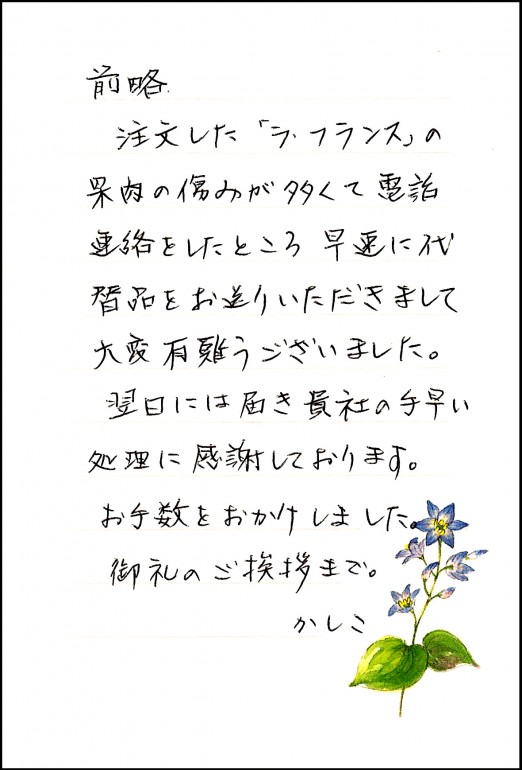 前略
注文した「ラ・フランス」の
果肉の傷みが多くて電話
連絡をしたところ早速に代
替品をお送りいただきまして
大変有難うございました。
翌日には届き貴社の手早い
処理に感謝しております。
お手数をおかけしました。
御礼のご挨拶まで。
かしこ